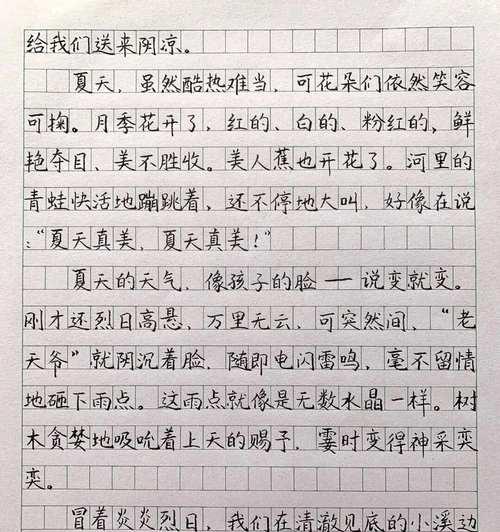 给我们送来阴凉。
夏天，虽然酷热难当，可花朵们依然笑容
可掬。月季花开了，红的、白的、粉红的，鲜
艳夺目、美不胜收。美人蕉也开花了。河里的
青蛙快活地蹦跳着，还不停地大叫，好像在说
：“夏天真美，夏天真美！”
夏天的天气，像孩子的脸——说变就变。
刚才还烈日高悬、万里无云，可突然间，“老
天爷”就阴沉着脸，随即电闪雷鸣，毫不留情
地砸下雨点。这雨点就像是无数水晶一样。树
木贪婪地吸吮着上天的赐予，霎时变得神采奕
奕。
冒着炎炎烈日，我们在清澈见底的小溪边